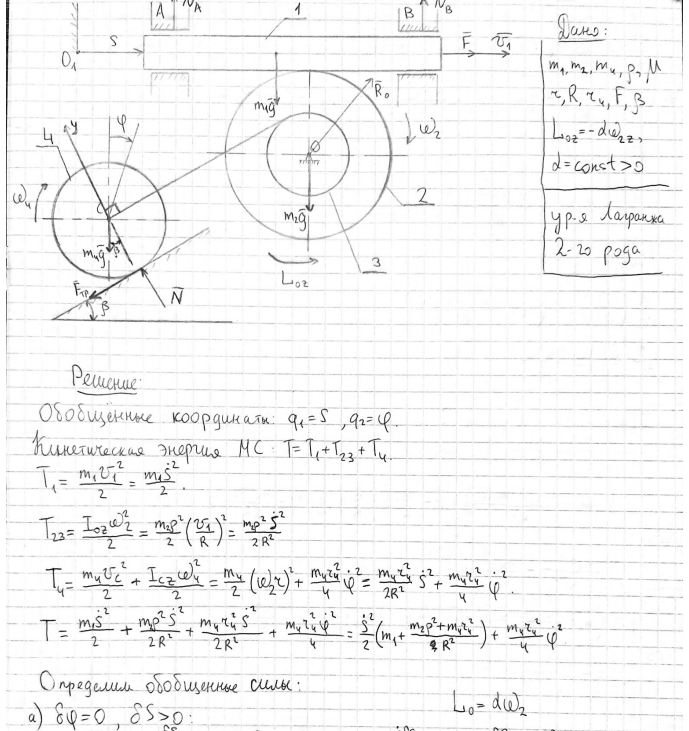 A
N_A
1
B
N_B
O_1
S
F̄
v̄_1
m_1ḡ
R̄_0
ω_2
4
y
φ
O
ω_4
C
m_4ḡ
β
m_2ḡ
2
3
F̄_тр
β
N̄
L_oz
Дано:
m_1, m_2, m_4, ρ, μ
r, R, r_4, F, β
L_oz = -αω_2z,
α = const > 0
ур-я Лагранжа
2-го рода
Решение:
Обобщённые координаты: q_1 = S, q_2 = φ.
Кинетическая энергия МС: T = T_1 + T_23 + T_4.
T_1 = m_1v_1²/2 = m_1ṡ²/2.
T_23 = I_oz ω_2²/2 = m_2ρ²/2 (v_1/R)² = m_2ρ²ṡ²/2R²
T_4 = m_4v_c²/2 + I_cz ω_4²/2 = m_4/2 (ω_2 r)² + m_4r_4²/4 φ̇² = m_4r_4²/2R² ṡ² + m_4r_4²/4 φ̇².
T = m_1ṡ²/2 + m_2ρ²ṡ²/2R² + m_4r_4²ṡ²/2R² + m_4r_4²φ̇²/4 = ṡ²/2 (m_1 + (m_2ρ² + m_4r_4²)/R²) + m_4r_4²/4 φ̇²
Определим обобщенные силы:
L_o = αω_2
а) δφ = 0, δS > 0: